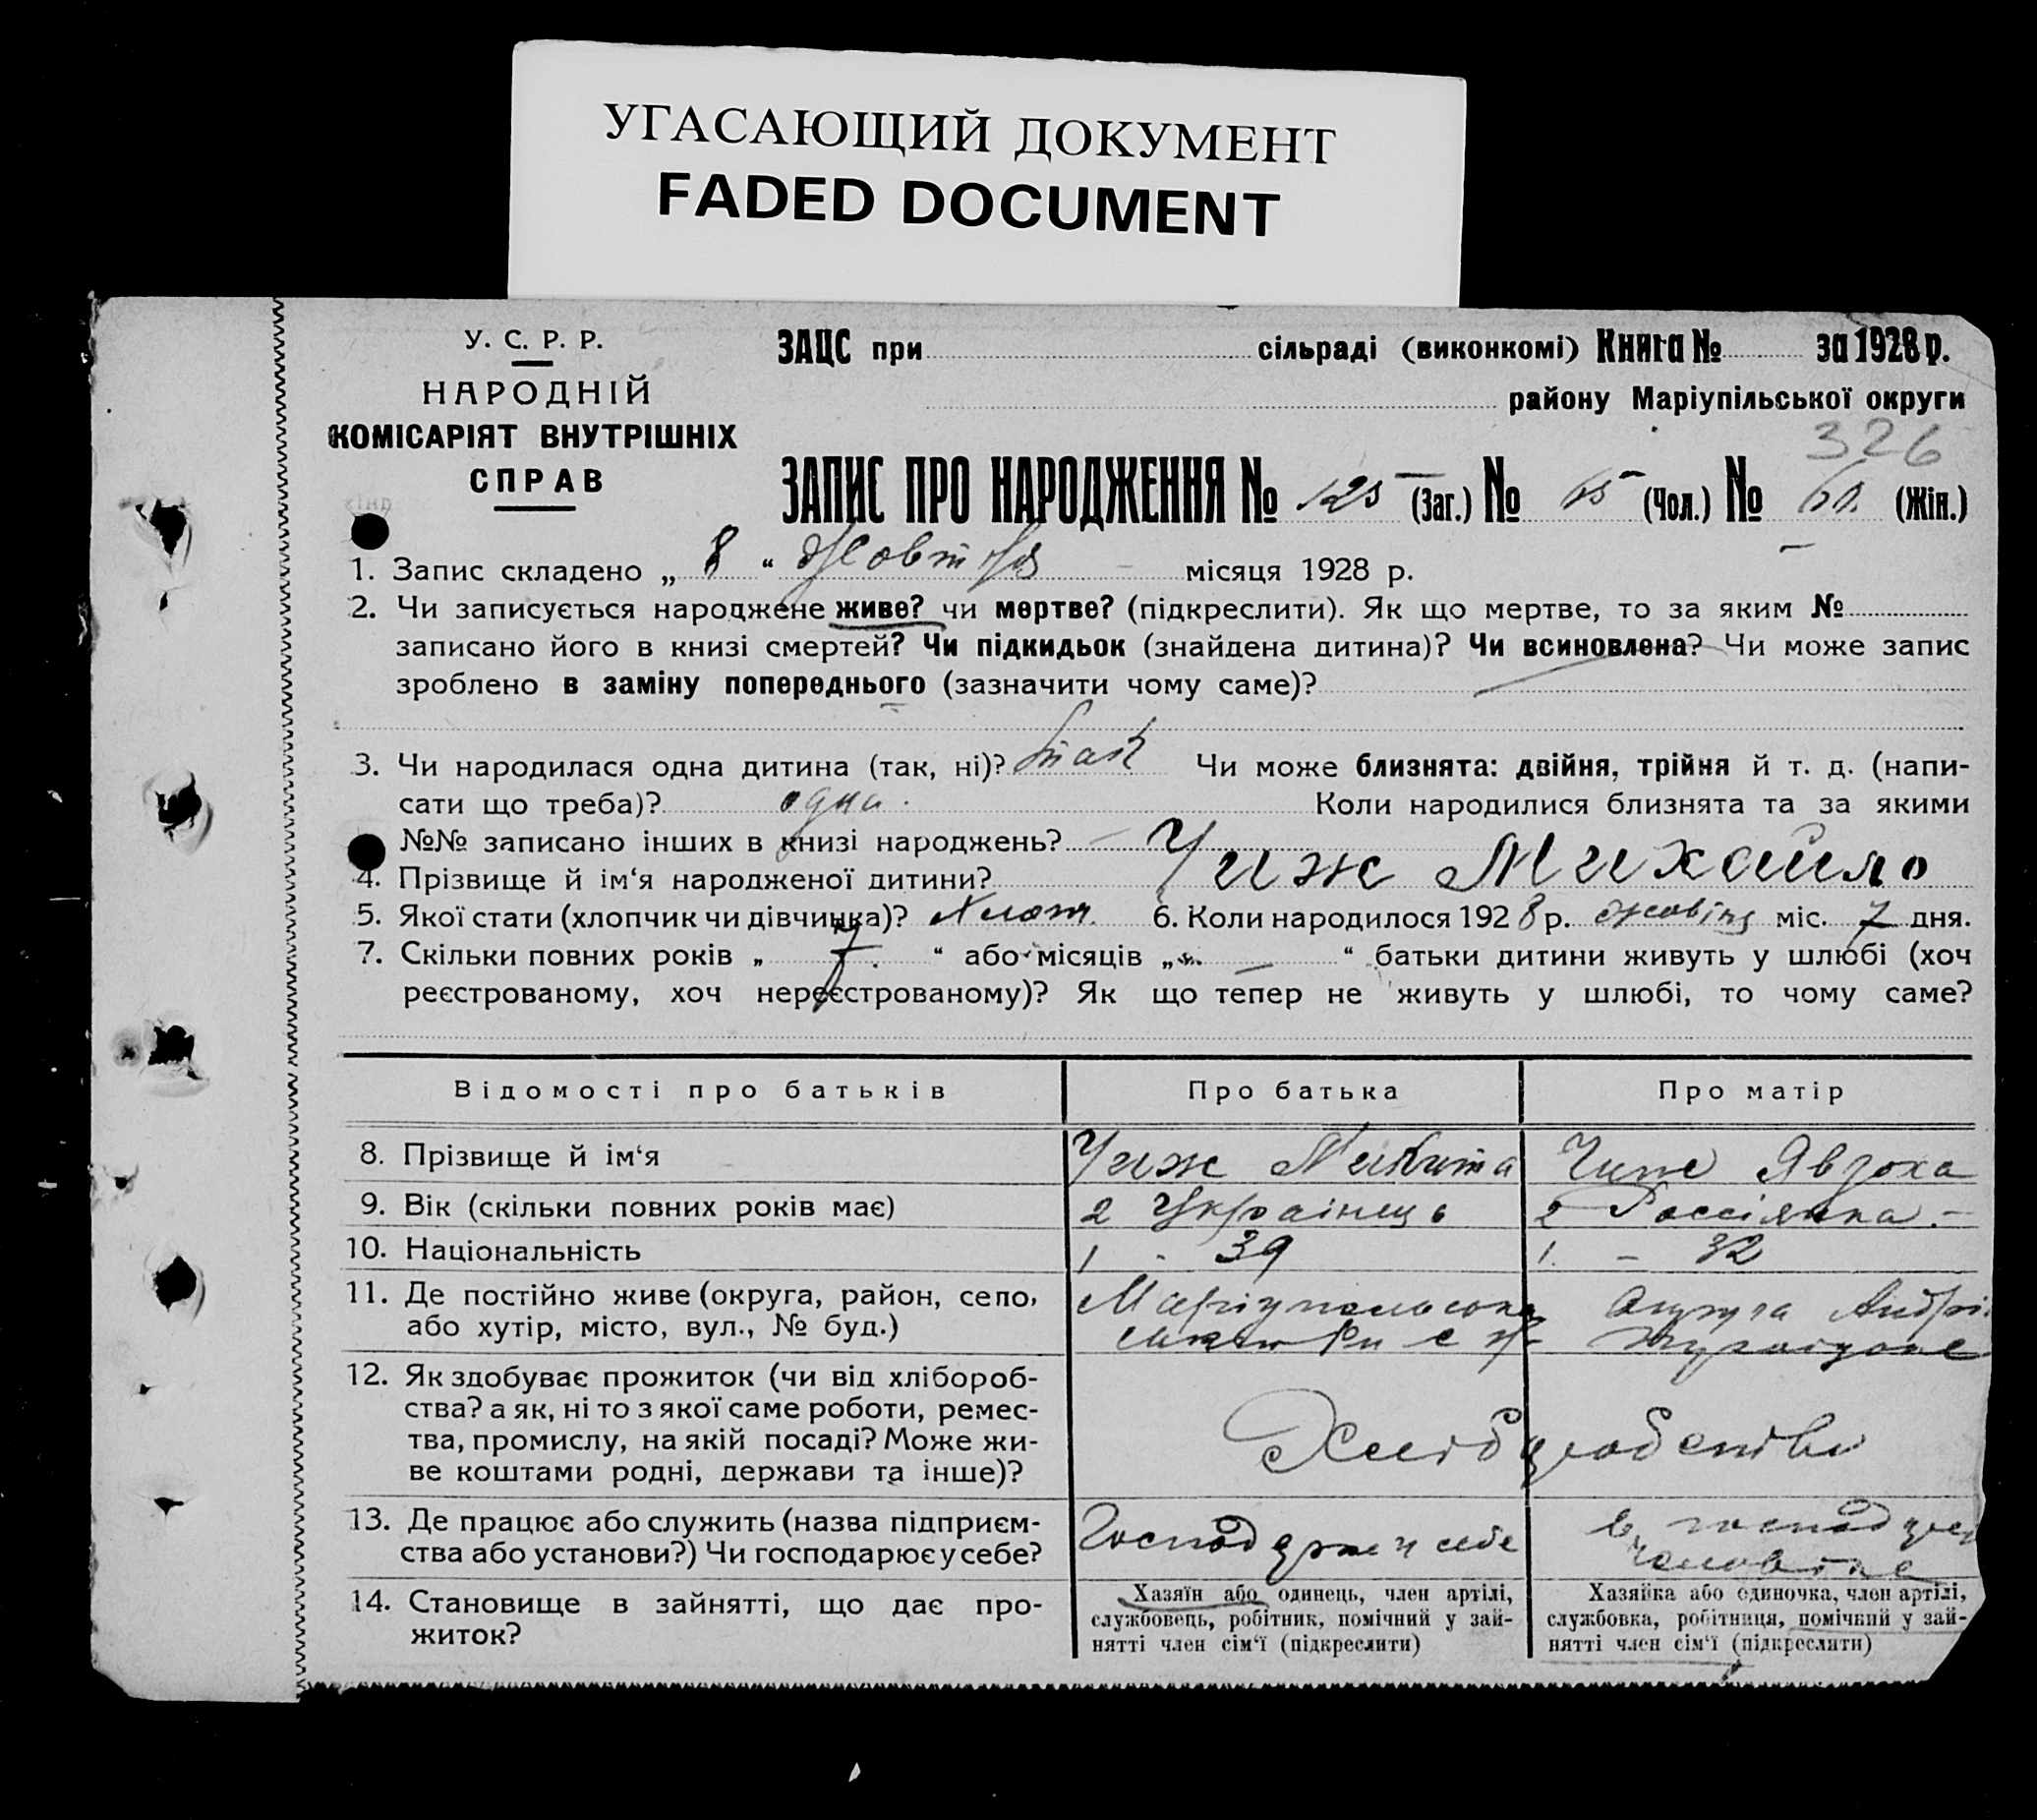 УГАСАЮЩИЙ ДОКУМЕНТ
FADED DOCUMENT
У. С. Р. Р.
НАРОДНІЙ
КОМІСАРІЯТ ВНУТРІШНІХ
СПРАВ
ЗАЦС при сільраді (виконкомі) Книга № за 1928 р.
району Маріупільської округи
326
ЗАПИС ПРО НАРОДЖЕННЯ № 125 (Заг.) № 65 (Чол.) № 60 (Жін.)
1. Запис складено „ 8 “ Жовтня місяця 1928 р.
2. Чи записується народжене живе? чи мертве? (підкреслити). Як що мертве, то за яким №
записано його в книзі смертей? Чи підкидьок (знайдена дитина)? Чи всиновлена? Чи може запис
зроблено в заміну попереднього (зазначити чому саме)?
3. Чи народилася одна дитина (так, ні)? так Чи може близнята: двійня, трійня й т. д. (напи-
сати що треба)? одна. Коли народилися близнята та за якими
№№ записано інших в книзі народжень? —
4. Прізвище й ім‘я народженої дитини? Чиж Михайло
5. Якої стати (хлопчик чи дівчинка)? Хлоп. 6. Коли народилося 1928 р. жовтня міс. 7 дня.
7. Скільки повних років „ 7. “ або місяців „ — “ батьки дитини живуть у шлюбі (хоч
реєстрованому, хоч нереєстрованому)? Як що тепер не живуть у шлюбі, то чому саме?
Відомості про батьків Про батька Про матір
8. Прізвище й ім‘я Чиж Микита Чиж
9. Вік (скільки повних років має) 2 Украінець 2 Россіянка. —
10. Національність 1 - 39 1. - 32
11. Де постійно живе (округа, район, село, Маріупольська Округа
або хутір, місто, вул., № буд.)
12. Як здобуває прожиток (чи від хлібороб-
ства? а як, ні то з якої саме роботи, ремес-
тва, промислу, на якій посаді? Може жи-
ве коштами родні, держави та інше)?
13. Де працює або служить (назва підприєм- в
ства або установи?) Чи господарює у себе? себе
14. Становище в зайнятті, що дає про-
житок?
Хазяїн або одинець, член артілі,
службовець, робітник, помічний у зай-
нятті член сім‘ї (підкреслити)
Хазяйка або одиночка, член артілі,
службовка, робітниця, помічний у зай-
нятті член сім‘ї (підкреслити)